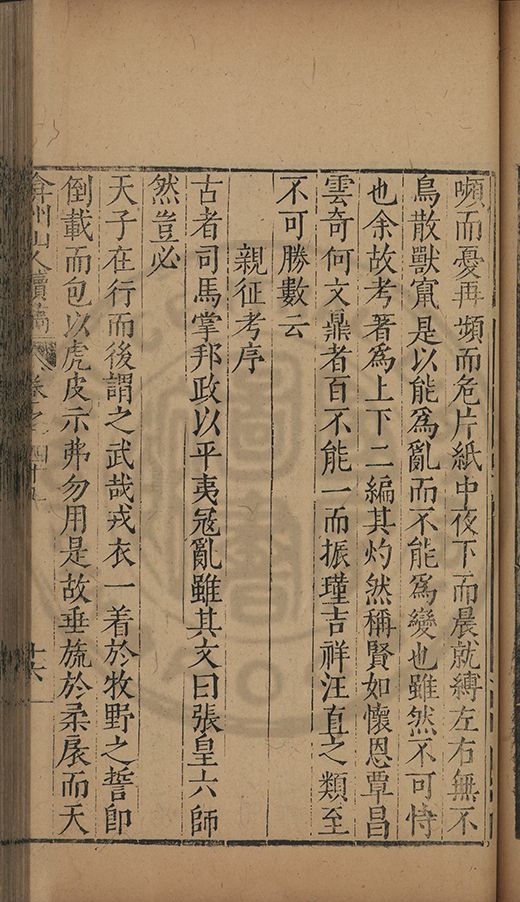 嚬而憂再嚬而危片紙中夜下而晨就縛左右無不
鳥散獸竄是以能爲亂而不能爲變也雖然不可恃
也余故考著爲上下二編其灼然稱賢如懷恩覃昌
雲奇何文鼎者百不能一而振瑾吉祥汪直之類至
不可勝數云
親征考序
古者司馬掌邦政以平夷冦亂雖其文曰張皇六師
然豈必
天子在行而後謂之武哉戎衣一着於牧野之誓卽
倒載而包以虎皮示弗勿用是故垂旒於柔扆而天
弇州山人續稿 卷之四十九 十六